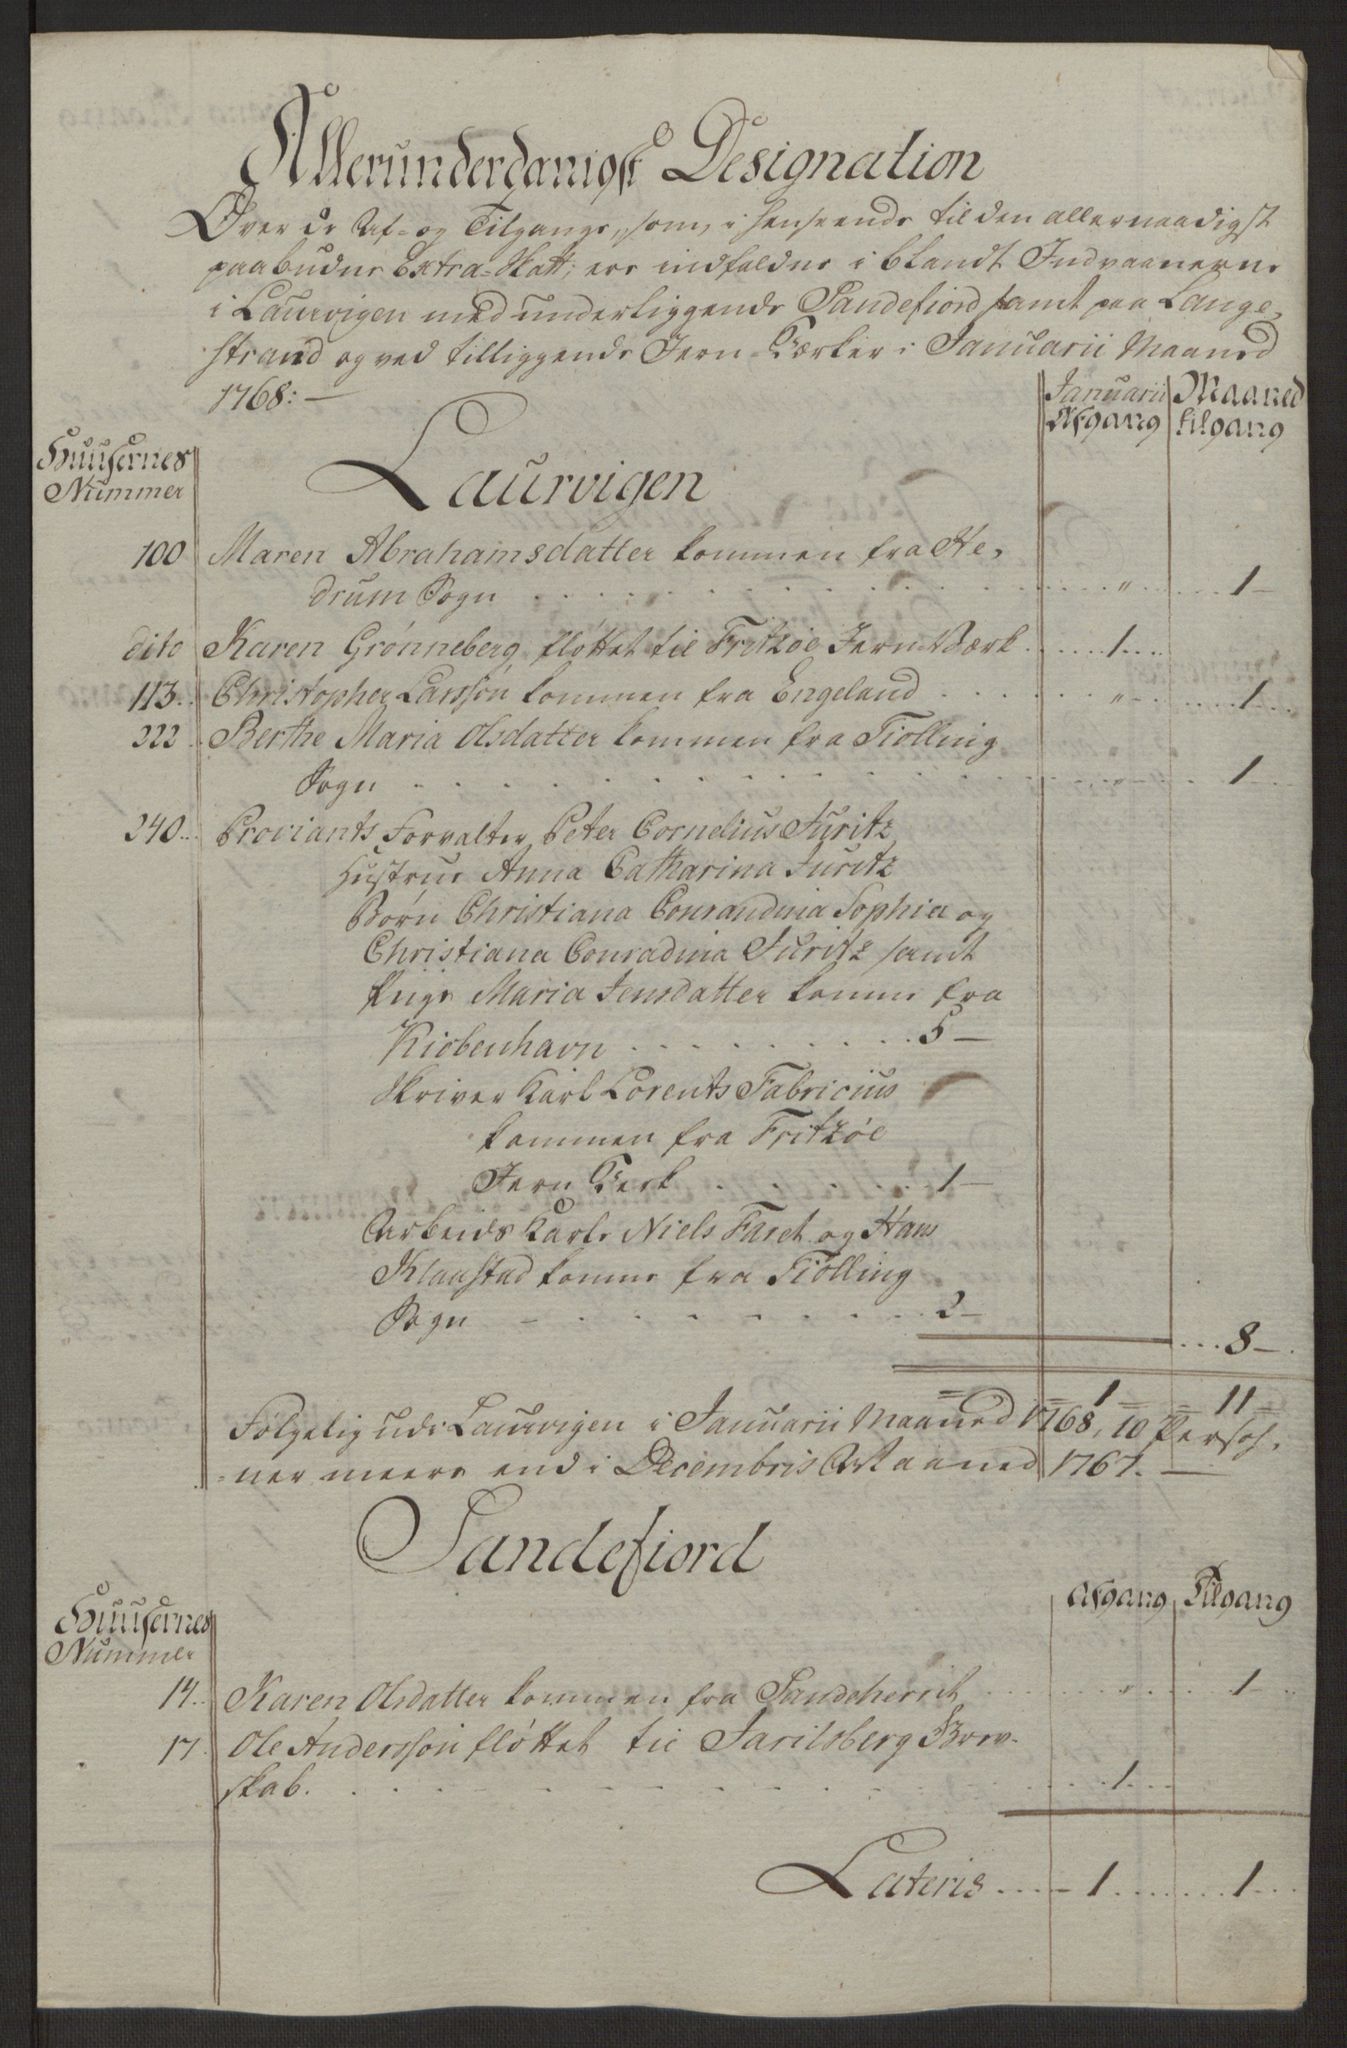 Allerunderdanigst Designation
Over de Af- og Tilgange, som, i henseende til den allernaadigst
paabudne Extra-Skatt, ere indfaldne i blandt Indvaanerne
i Laurvigen med underliggende Sandefiord samt paa Lange-
strand og ved tilliggende Jern-Værker i Januarii Maaned
1768: —
Januarii Maaned
Afgang Tilgang
Huusernes
Nummer
Laurvigen
100 Maren Abrahamsdatter kommen fra He-
drum Sogn . . . . . . . . " . . . . 1 —
dito Karen Grønneberg fløttet til Fritzøe Jern-Værk . . . 1 . . .
113. Christopher Larssøn kommen fra Engeland . . . . " . . . . 1 . . .
222 Berthe Maria Olsdatter kommen fra Tiølling
Sogn . . . . . . . . " . . . . 1 —
240. Proviants Forvalter Peter Cornelius Juritz
Hustrue Anna Catharina Juritz
Børn Christiana Conrandina Sophia og
Christiana Conradina Juritz samt
Pige Maria Jensdatter komne fra
Kiøbenhavn . . . . . . . . 5 —
Skriver Karl Lorents Fabricius
kommen fra Fritzøe
Jern Værk . . . . . 1 —
Arbeids Karle Niels Faret og Hans
Klaastad komne fra Tiølling
Sogn — . . . . . . . 2 —
. . . 8 — .
= = 1 = = 11 =
Følgelig udi Laurvigen i Januarii Maaned 1768, 10 Persoh-
ner meere end i Decembris Maaned 1767. —
Sandefiord
Afgang Tilgang
Huusernes
Nummer
14. Karen Olsdatter kommen fra Sandeherrit . . . " . . . 1 . . .
17. Ole Anderssøn fløttet til Jarilsberg Grev-
skab. . . . . . . . . . 1 . . .
Lateris . . . . 1 . . . . . 1 . . .